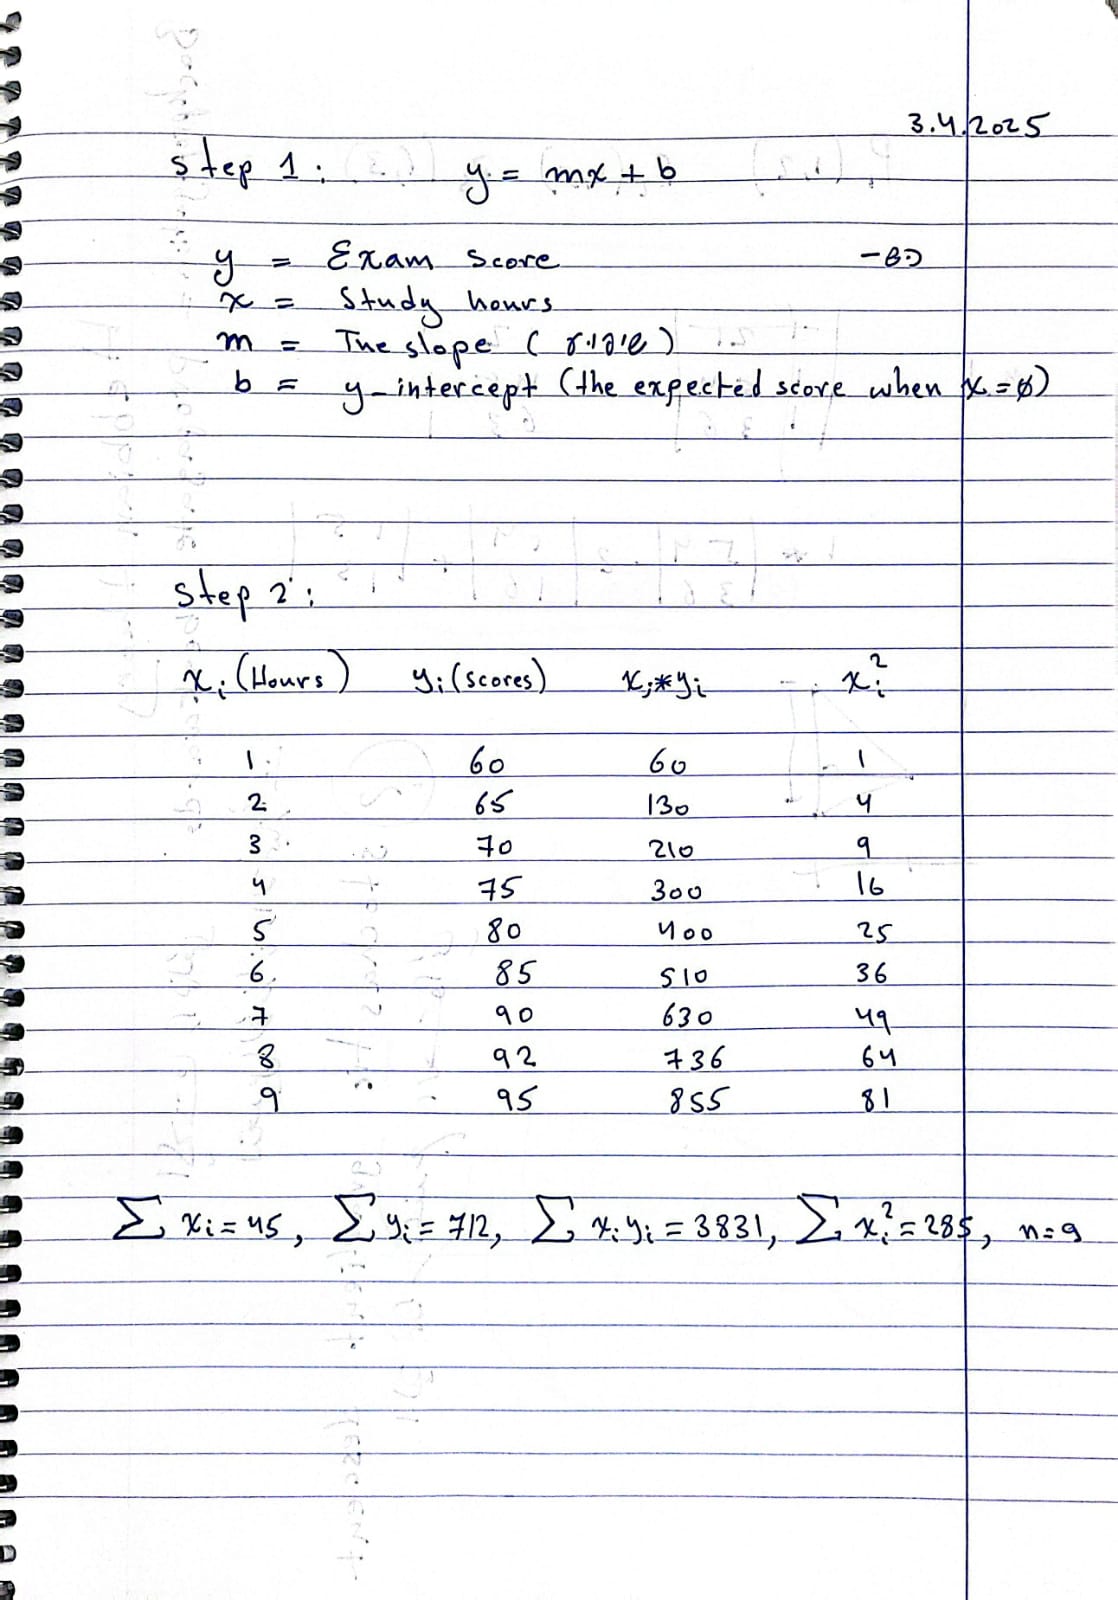 3.4.2025
step 1: y = mx + b
y = Exam score
x = Study hours
m = The slope ( שיפוע )
b = y-intercept (the expected score when x = ø)
step 2:
xᵢ (Hours) yᵢ (scores) xᵢ*yᵢ xᵢ²
1 60 60 1
2 65 130 4
3 70 210 9
4 75 300 16
5 80 400 25
6 85 510 36
7 90 630 49
8 92 736 64
9 95 855 81
∑ xᵢ = 45, ∑ yᵢ = 712, ∑ xᵢ yᵢ = 3831, ∑ xᵢ² = 285, n = 9